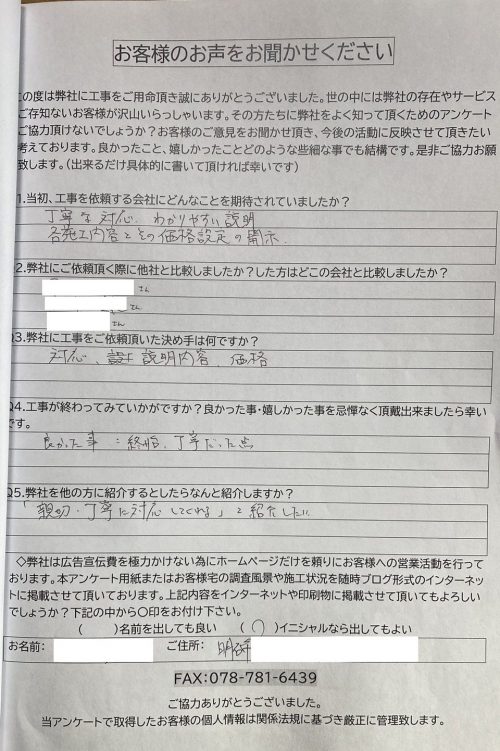 お客様のお声をお聞かせください
この度は弊社に工事をご用命頂き誠にありがとうございました。世の中には弊社の存在やサービス
ご存知ないお客様が沢山いらっしゃいます。その方たちに弊社をよく知って頂くためのアンケート
ご協力頂けないでしょうか？お客様のご意見をお聞かせ頂き、今後の活動に反映させて頂きたい
考えております。良かったこと、嬉しかったことどのような些細な事でも結構です。是非ご協力お願
致します。（出来るだけ具体的に書いて頂ければ幸いです）
1.当初、工事を依頼する会社にどんなことを期待されていましたか？
丁寧な対応、わかりやすい説明
各施工内容とその価格設定の開示.
2.弊社にご依頼頂く際に他社と比較しましたか？した方はどこの会社と比較しましたか？
さん
さん
さん
Q3.弊社に工事をご依頼頂いた決め手は何ですか？
対応、説明内容、価格
Q4.工事が終わってみていかがですか？良かった事・嬉しかった事を忌憚なく頂戴出来ましたら幸い
です。
良かった事：終始、丁寧だった点
Q5.弊社を他の方に紹介するとしたらなんと紹介しますか？
「親切・丁寧に対応してくれる」と紹介したい
◇弊社は広告宣伝費を極力かけない為にホームページだけを頼りにお客様への営業活動を行って
おります。本アンケート用紙またはお客様宅の調査風景や施工状況を随時ブログ形式のインターネッ
トに掲載させて頂いております。上記内容をインターネットや印刷物に掲載させて頂いてもよろしい
でしょうか？下記の中から〇印をお付け下さい。
（　）名前を出しても良い　（〇）イニシャルなら出してもよい
お名前：　ご住所：明石市
FAX：078-781-6439
ご協力ありがとうございました。
当アンケートで取得したお客様の個人情報は関係法規に基づき厳正に管理致します。